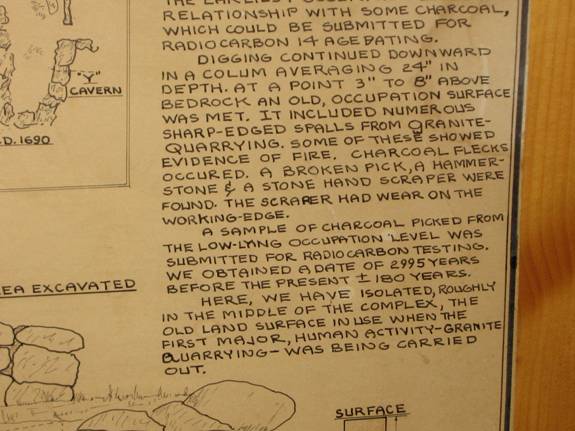 THE EARLIEST
RELATIONSHIP WITH SOME CHARCOAL,
WHICH COULD BE SUBMITTED FOR
RADIOCARBON 14 AGE DATING.
DIGGING CONTINUED DOWNWARD
IN A COLUM AVERAGING 24" IN
DEPTH. AT A POINT 3" TO 8" ABOVE
BEDROCK AN OLD, OCCUPATION SURFACE
WAS MET. IT INCLUDED NUMEROUS
SHARP-EDGED SPALLS FROM GRANITE-
QUARRYING. SOME OF THESE SHOWED
EVIDENCE OF FIRE. CHARCOAL FLECKS
OCCURED. A BROKEN PICK, A HAMMER-
STONE & A STONE HAND SCRAPER WERE
FOUND. THE SCRAPER HAD WEAR ON THE
WORKING-EDGE.
A SAMPLE OF CHARCOAL PICKED FROM
THE LOW-LYNG OCCUPATION LEVEL WAS
SUBMITTED FOR RADIOCARBON TESTING.
WE OBTAINED A DATE OF 2995 YEARS
BEFORE THE PRESENT ± 180 YEARS.
HERE, WE HAVE ISOLATED, ROUGHLY
IN THE MIDDLE OF THE COMPLEX, THE
OLD LAND SURFACE IN USE WHEN THE
FIRST MAJOR, HUMAN ACTIVITY-GRANITE
QUARRYING- WAS BEING CARRIED
OUT.
"Y"
CAVERN
D. 1690
EA EXCAVATED
SURFACE